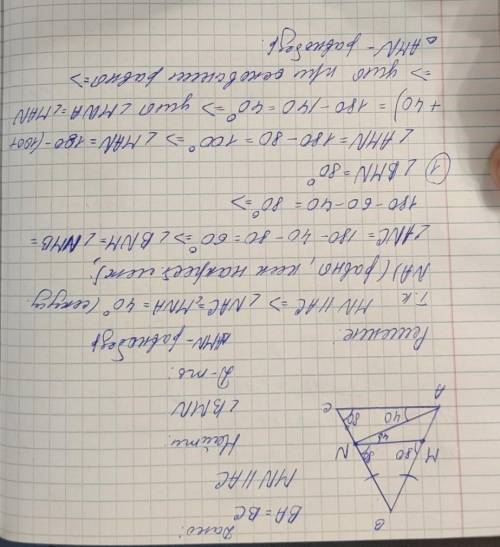 Дано:
BA = BC
MN || AC
Найти:
∠BMN
Д-ть:
AMN - равнобедр.
B
M
N
80
80
40
40
80
A
C
Решение:
Т.к. MN || AC => ∠NAC = MNA = 40° (секущ.
NA) (равно, как накрест леж.);
∠ANC = 180 - 40 - 80 = 60° => ∠BNM = ∠NMB =
180 - 60 - 40 = 80° =>
∠BMN = 80°
① ∠AMN = 180 - 80 = 100° => ∠MAN = 180 - (100+
+ 40) = 180 - 140 = 40° => угло ∠MNA = ∠MAN
=> угло при основании равно =>
△AMN - равнобедр.